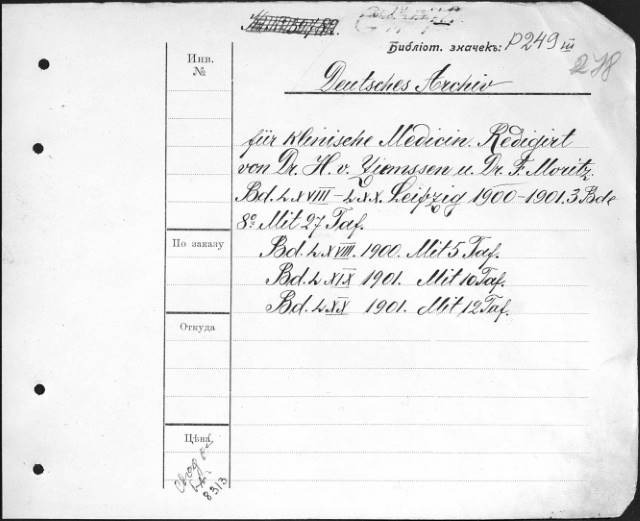 Библіот. значекъ: P249 III
278
Инв.
№
Deutsches Archiv
für klinische Medicin. Redigirt
von Dr. H. v. Ziemssen u. Dr. F. Moritz.
Bd. LXVIII–LXX. Leipzig 1900–1901. 3 Bde
8º Mit 27 Taf.
По заказу
Bd. LXVIII. 1900. Mit 5 Taf.
Bd. LXIX 1901. Mit 10 Taf.
Bd. LXX 1901. Mit 12 Taf.
Откуда
Цѣна
8313